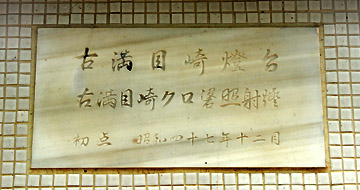 古満目崎燈台
古満目崎クロ碆照射燈
初点 昭和四十七年十二月